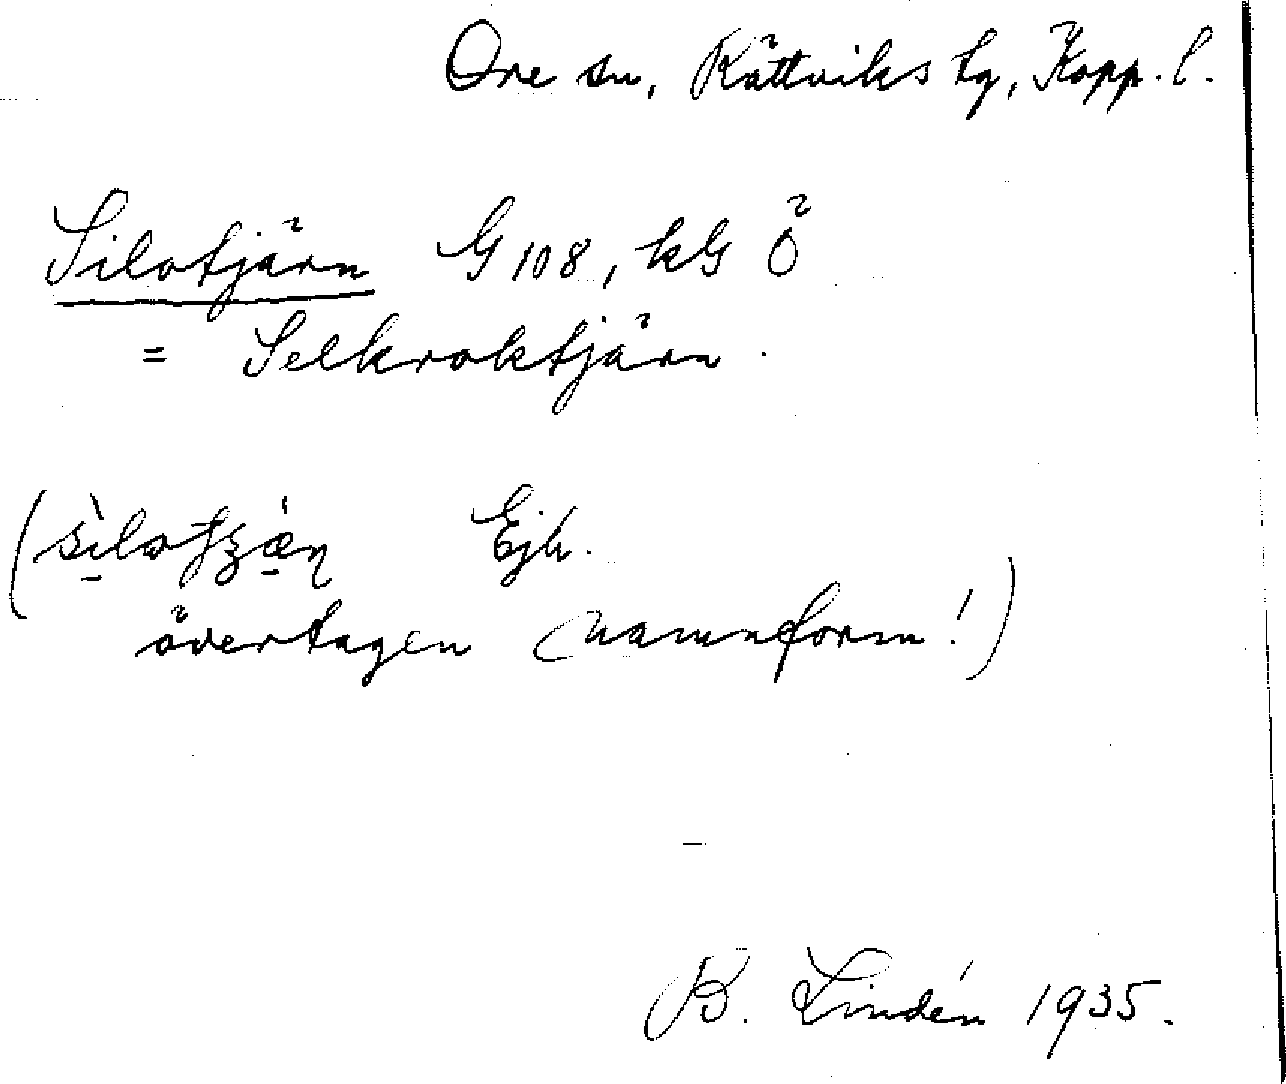 Ore sn, Rättviks tg, Kopp. l.
Silotjärn G 108, kG Ö
= Selkroktjärn.
Ejh.
övertagen namnform!)
B. Lindén 1935.